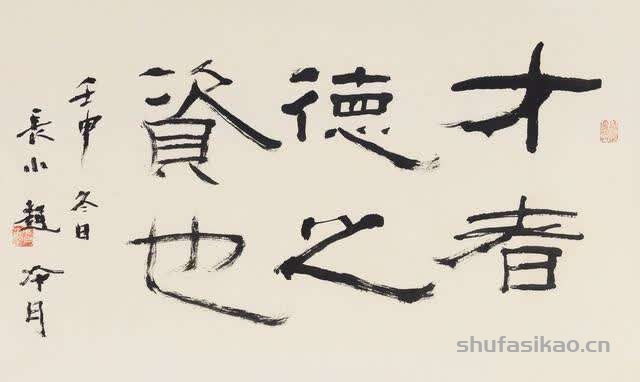 才者
德之
資也
壬申冬日
長水趙冷月
shufasikao.cn